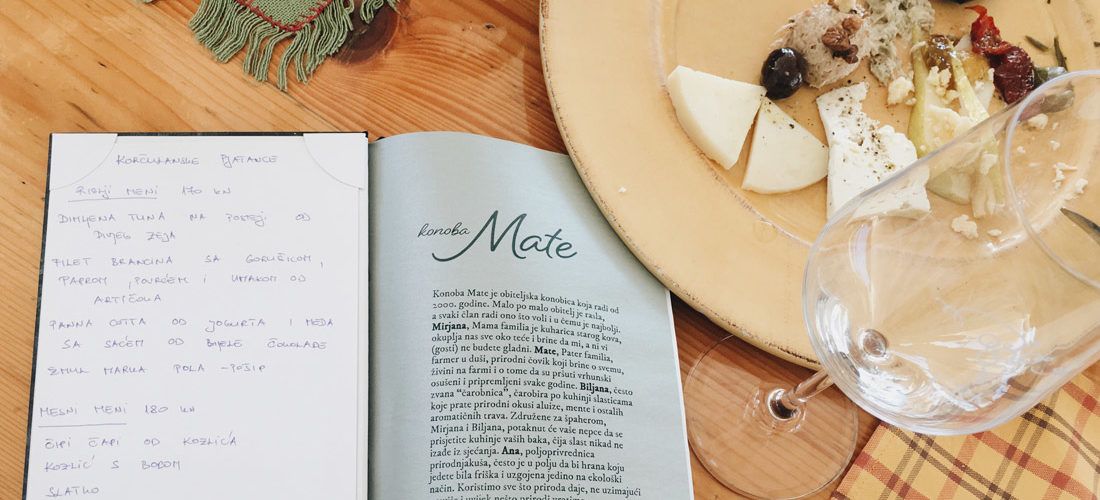 KORČULANSKE PJATANCE
RIBLJI MENI 170 KN
DIMLJENA TUNA NA POSTEJI OD
DIVJEG ZEJA
FILET BRANCINA SA GORUŠICOM,
PAPROM, POVRĆEM I UMAKOM OD
ARTIČOKA
PANNA COTTA OD JOGURTA I MEDA
SA SAĆEM OD BIJELE ČOKOLADE
ŽMUL MARKA POLA - POŠIP
MESNI MENI 180 KN
ČIPI ČAPI OD KOZLIĆA
KOZLIĆ S BOBOM
SLATKO
konoba Mate
Konoba Mate je obiteljska konobica koja radi od
2000. godine. Malo po malo obitelj je rasla,
a svaki član radi ono što voli i u čemu je najbolji.
Mirjana, Mama familia je kuharica starog kova,
okuplja nas sve oko teće i brine da mi, a ni vi
(gosti) ne budete gladni. Mate, Pater familia,
farmer u duši, prirodni čovik koji brine o svemu,
živini na farmi i o tome da su pršuti vrhunski
osušeni i pripremljeni svake godine. Biljana, često
zvana "čarobnica", čarobira po kuhinji slasticama
koje prate prirodni okusi aluize, mente i ostalih
aromatičnih trava. Združene za špaherom,
Mirjana i Biljana, potaknut će vaše nepce da se
prisjetite kuhinje vaših baka, čija slast nikad ne
izađe iz sjećanja. Ana, poljoprivrednica
prirodnjakuša, često je u polju da bi hrana koju
jedete bila friška i uzgojena jedino na ekološki
način. Koristimo sve što priroda daje, ne uzimajući